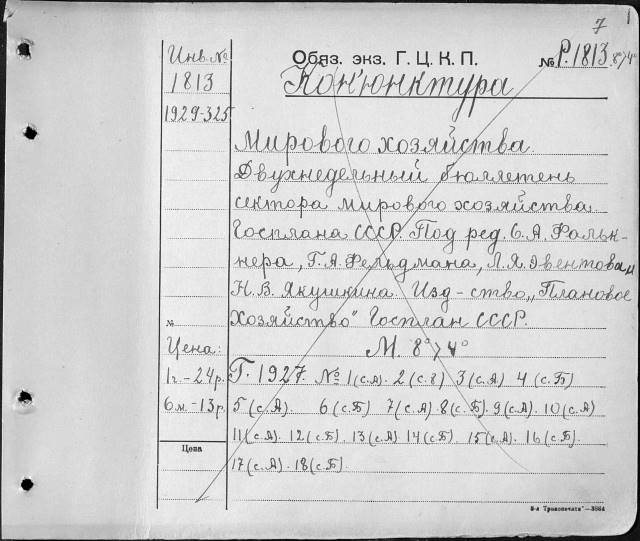 7
Инв. №
1813
1929-325
Обяз. экз. Г. Ц. К. П.
№ Р. 1813 8°>4°
Кон'юнктура
Мирового хозяйства.
Двухнедельный бюллетень
сектора мирового хозяйства.
Госплана СССР. Под ред. С. А. Фальк-
нера, Г. А. Фельдмана, Л. Я. Эвентова и
Н. В. Якушкина. Изд-ство „Плановое
Хозяйство" Госплан СССР.
М. 8°>4°
№
Цена:
1 г.-24 р.
6 м.-13 р.
Цена
Г. 1927. № 1 (с.А). 2 (с.Б) 3 (с.А) 4 (с.Б)
5 (с.А). 6 (с.Б) 7 (с.А) 8 (с.Б). 9 (с.А). 10 (с.А)
11 (с.А). 12 (с.Б). 13 (с.А) 14 (с.Б). 15 (с.А). 16 (с.Б).
17 (с.А). 18 (с.Б).
3-я Транспечати"—3884